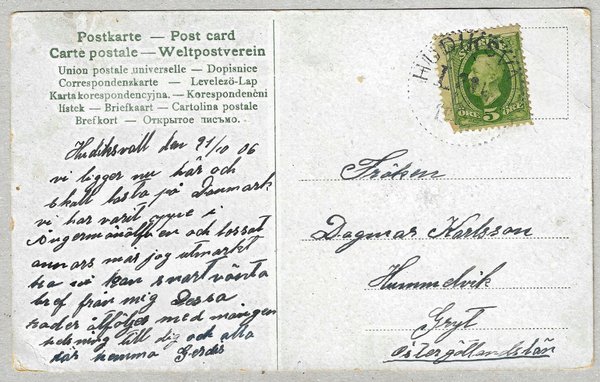 Postkarte — Post card
Carte postale — Weltpostverein
Union postale universelle — Dopisnice
Correspondenzkarte — Levelező-Lap
Karta korespondencyjna. — Korespondenční
lístek — Briefkaart — Cartolina postale
Brefkort — Открытое письмо.
HUDIKSV
ÖRE 5 ÖRE
Hudiksvall den 21/10 06
vi ligger nu här och
skall lasta på Danmark
vi har varit uppe i
Ångermanälfven och lossat
annars mår jag utmärkt
ha vi kan snart vänta
bref från mig Dessa
rader åtföljes med mången
helsning till dig och alla
där hemma
Fröken
Dagmar Karlsson
Hummelvik
Gryt
Östergöllandslän